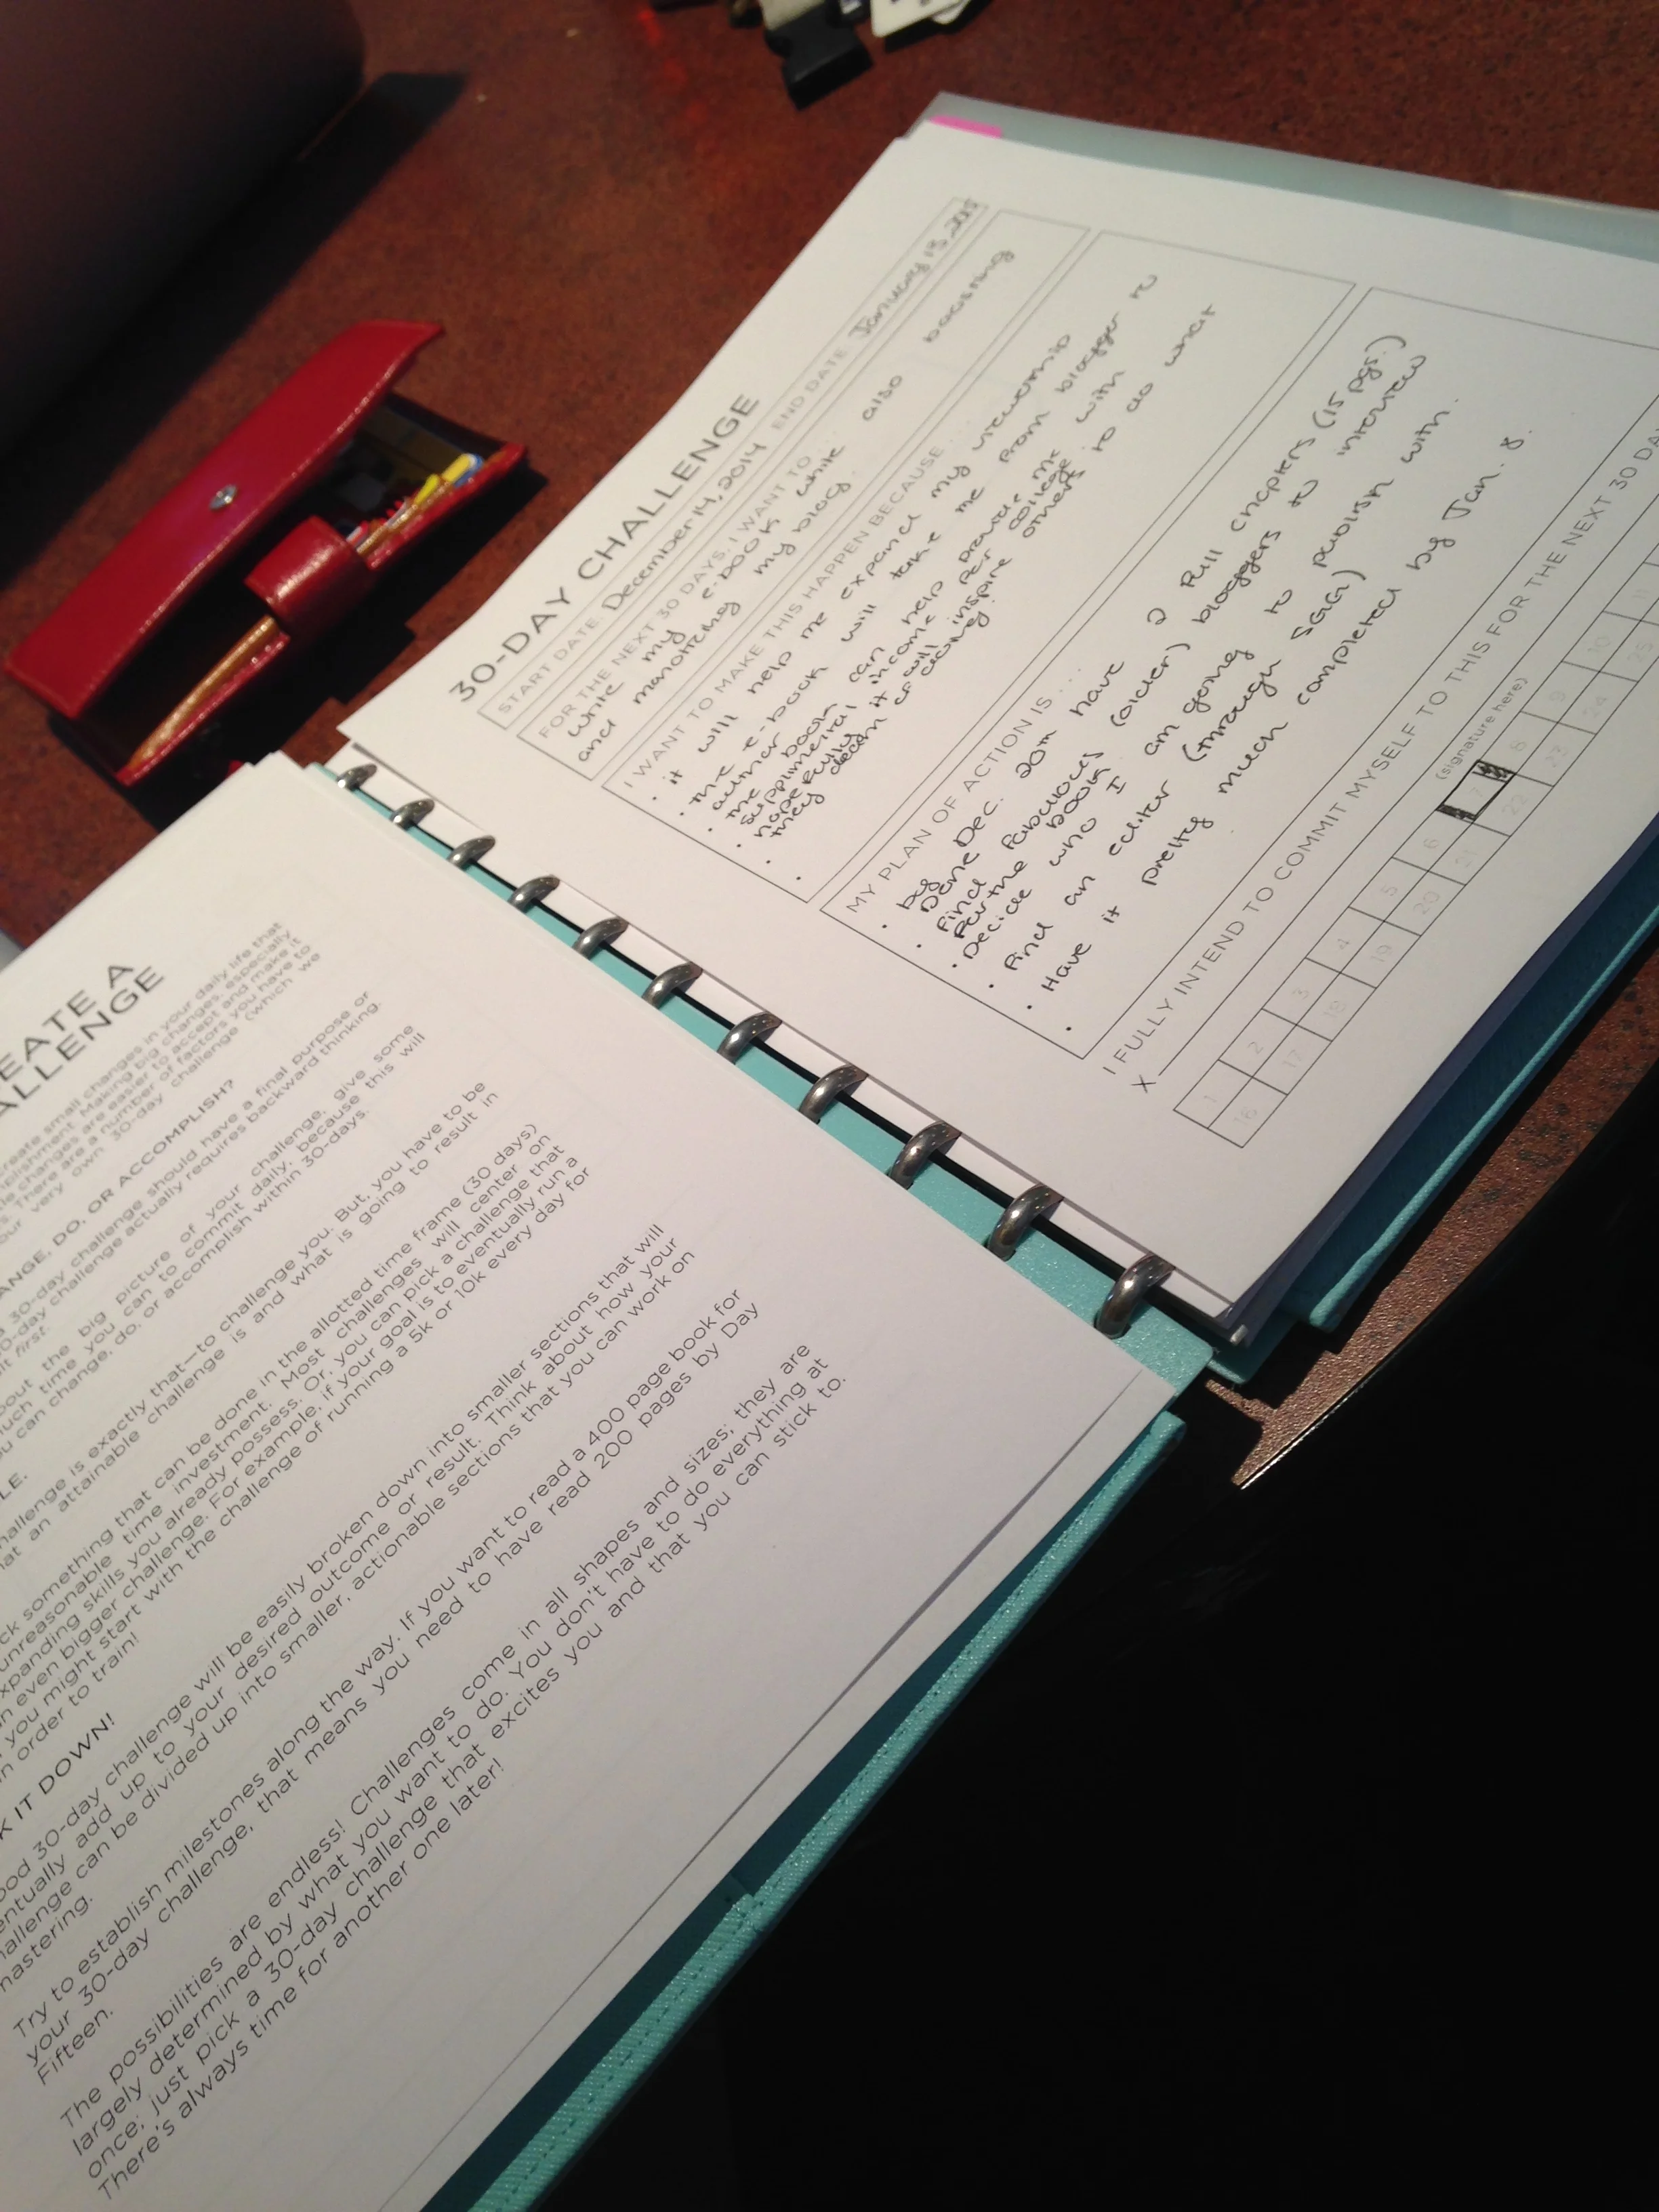 EATE A
ALLENGE
create small changes in your daily life that
plishment. Making big changes, especially
le changes are easier to accept and make it
s. There are a number of factors you have to
our very own 30-day challenge (which we
ANGE, DO, OR ACCOMPLISH?
a 30-day challenge should have a final purpose or
0-day challenge actually requires backward thinking.
lt first.
bout the big picture of your challenge, give some
uch time you can to commit daily, because this will
u can change, do, or accomplish within 30-days.
LE.
hallenge is exactly that—to challenge you. But, you have to be
at an attainable challenge is and what is going to result in
ck something that can be done in the allotted time frame (30 days)
unreasonable time investment. Most challenges will center on
xpanding skills you already possess. Or, you can pick a challenge that
n even bigger challenge. For example, if your goal is to eventually run a
, you might start with the challenge of running a 5k or 10k every day for
n order to train!
K IT DOWN!
ood 30-day challenge will be easily broken down into smaller sections that will
entually add up to your desired outcome or result. Think about how your
hallenge can be divided up into smaller, actionable sections that you can work on
mastering.
Try to establish milestones along the way. If you want to read a 400 page book for
your 30-day challenge, that means you need to have read 200 pages by Day
Fifteen.
The possibilities are endless! Challenges come in all shapes and sizes; they are
largely determined by what you want to do. You don't have to do everything at
once; just pick a 30-day challenge that excites you and that you can stick to.
There's always time for another one later!
30-DAY CHALLENGE
START DATE: December 14, 2014 END DATE: January 13, 2015
FOR THE NEXT 30 DAYS, I WANT TO...
Write my e-book while also boosting
and monetizing my blog.
I WANT TO MAKE THIS HAPPEN BECAUSE...
• it will help me expand my viewership
• the e-book will take me from blogger to
author
• the book can help provide me with
supplimental income for college.
• hopefully it will inspire others to do what
they dream of doing.
MY PLAN OF ACTION IS...
• by Dec. 20th have 2 full chapters (15 pgs.)
Done
• Find fabulous (older) bloggers to interview
for the book
• Decide who I am going to publish with.
• Find an editor (through SGG)
• Have it pretty much completed by Jan. 8.
I FULLY INTEND TO COMMIT MYSELF TO THIS FOR THE NEXT 30 DA
X
(signature here)
1 2 3 4 5 6 7 8 9 10 11
16 17 18 19 20 21 22 23 24 25